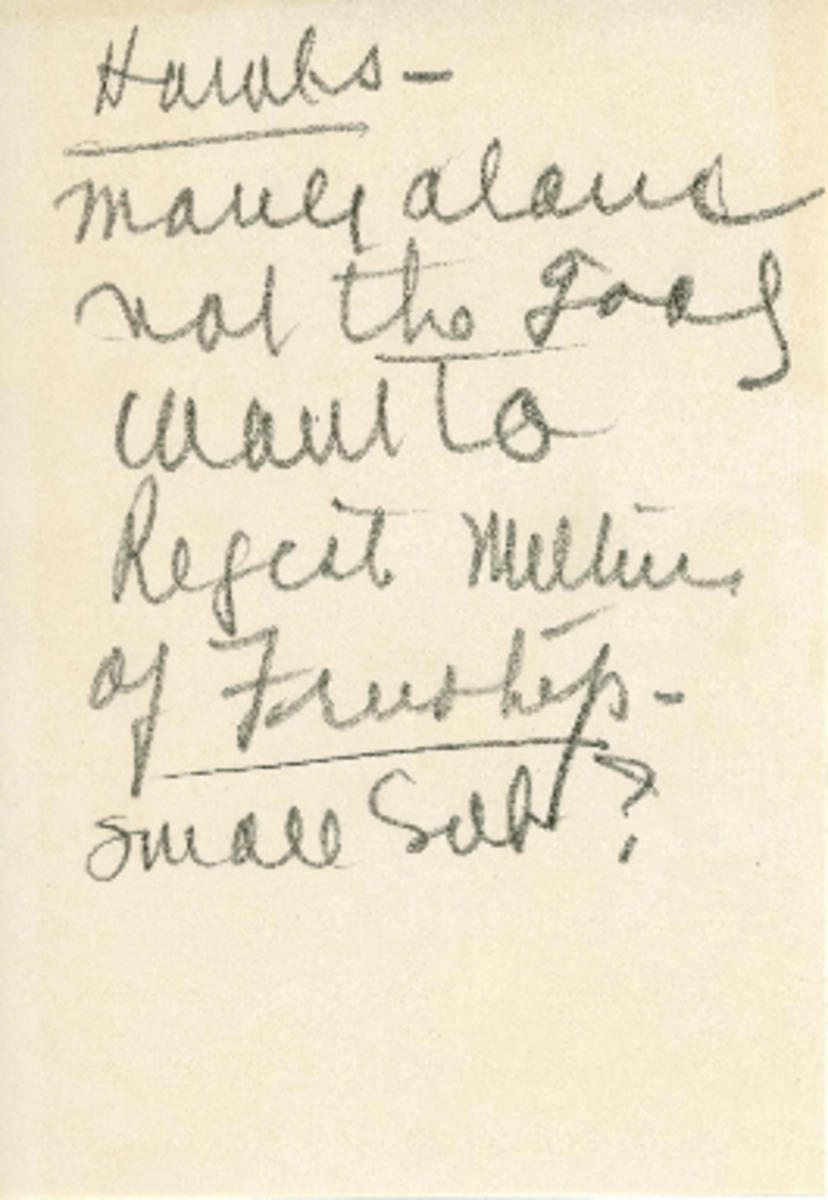 Harabs -
Money alone
not the goal
want to
Regist Million
of Friendships -
small Sub ?